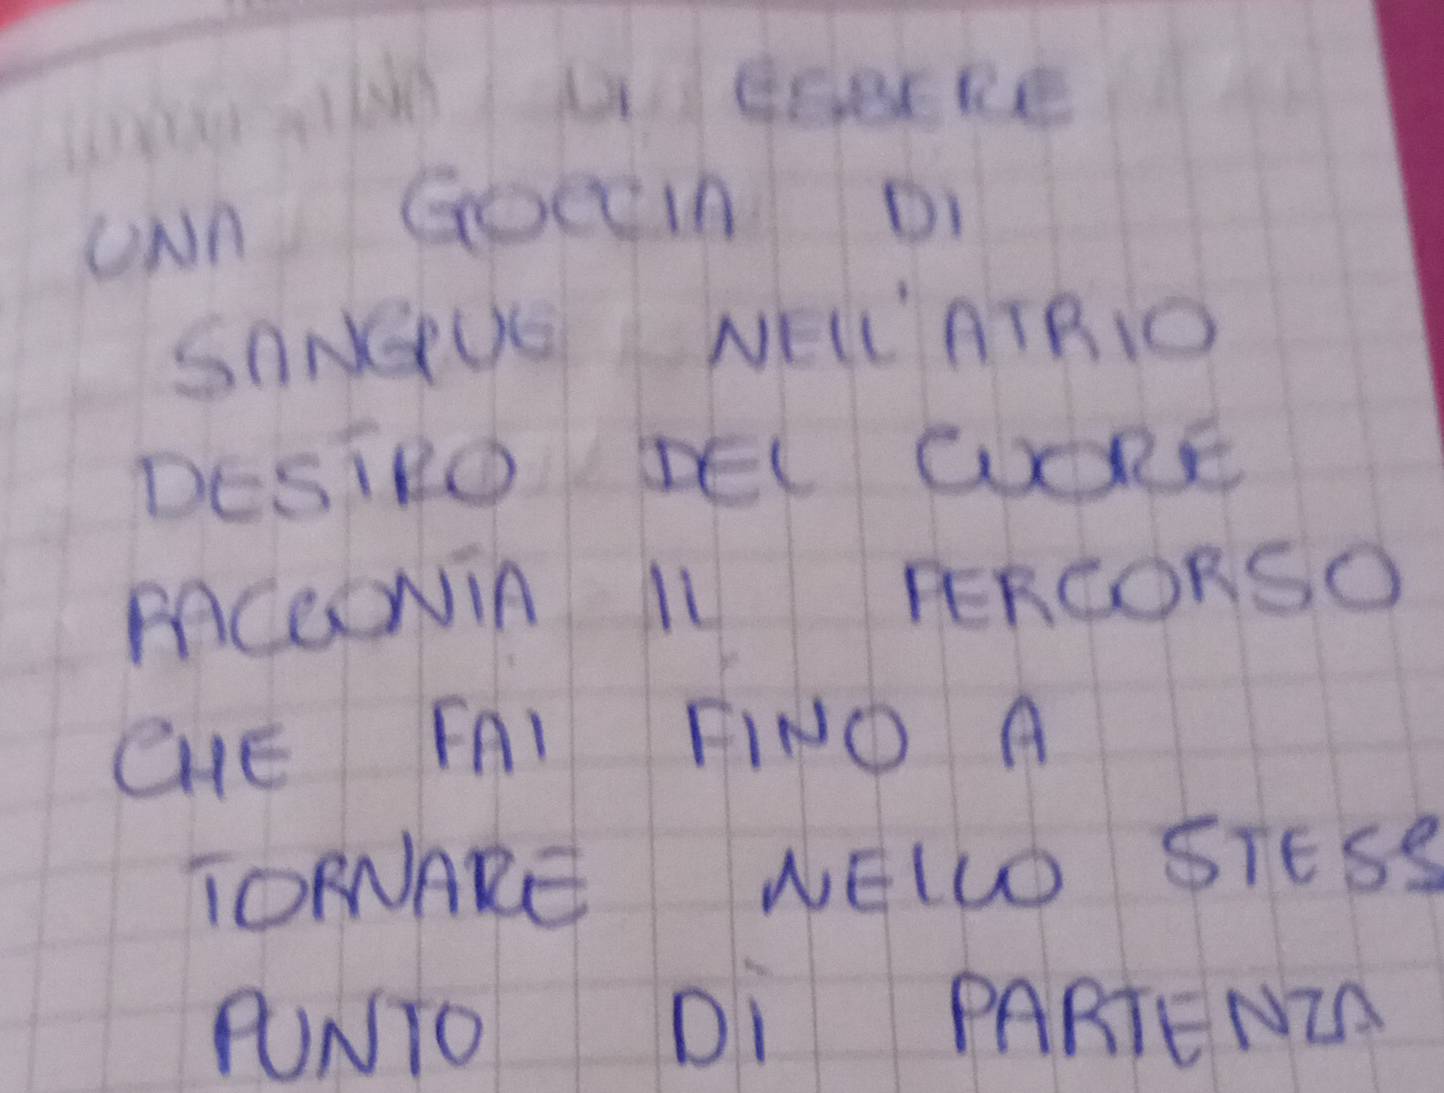 DI ESSERE
UNA GOCCIA DI
SANGUE NELL'ATRIO
DESTRO DEL CUORE
RACCONTA IL PERCORSO
CHE FAI FINO A
TORNARE NELLO STESS
PUNTO DI PARTENZA